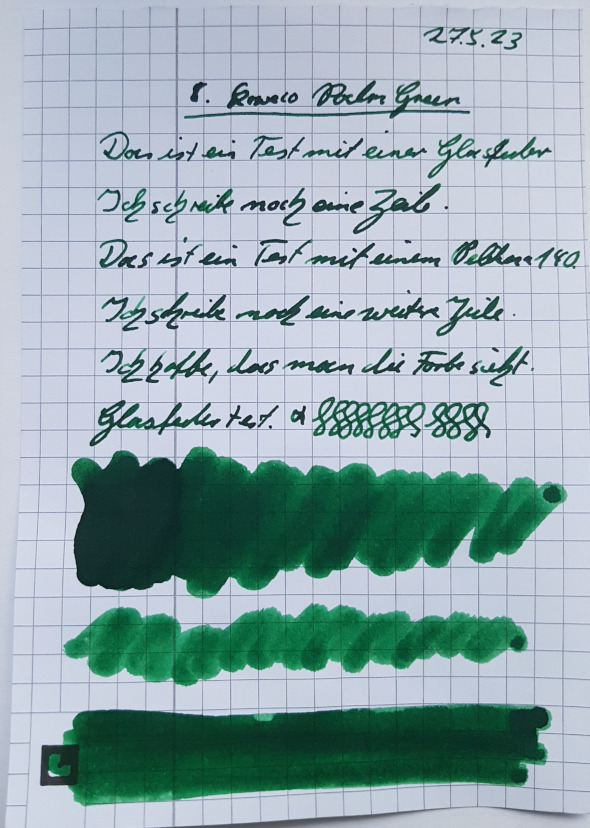 27.5.23
8. Kaweco Palm Green
Das ist ein Test mit einer Glasfeder
Ich schreibe noch eine Zeile.
Das ist ein Test mit einem Pelikan 140.
Ich schreibe noch eine weitere Zeile.
Ich hoffe, dass man die Farbe sieht.
Glasfedertest.